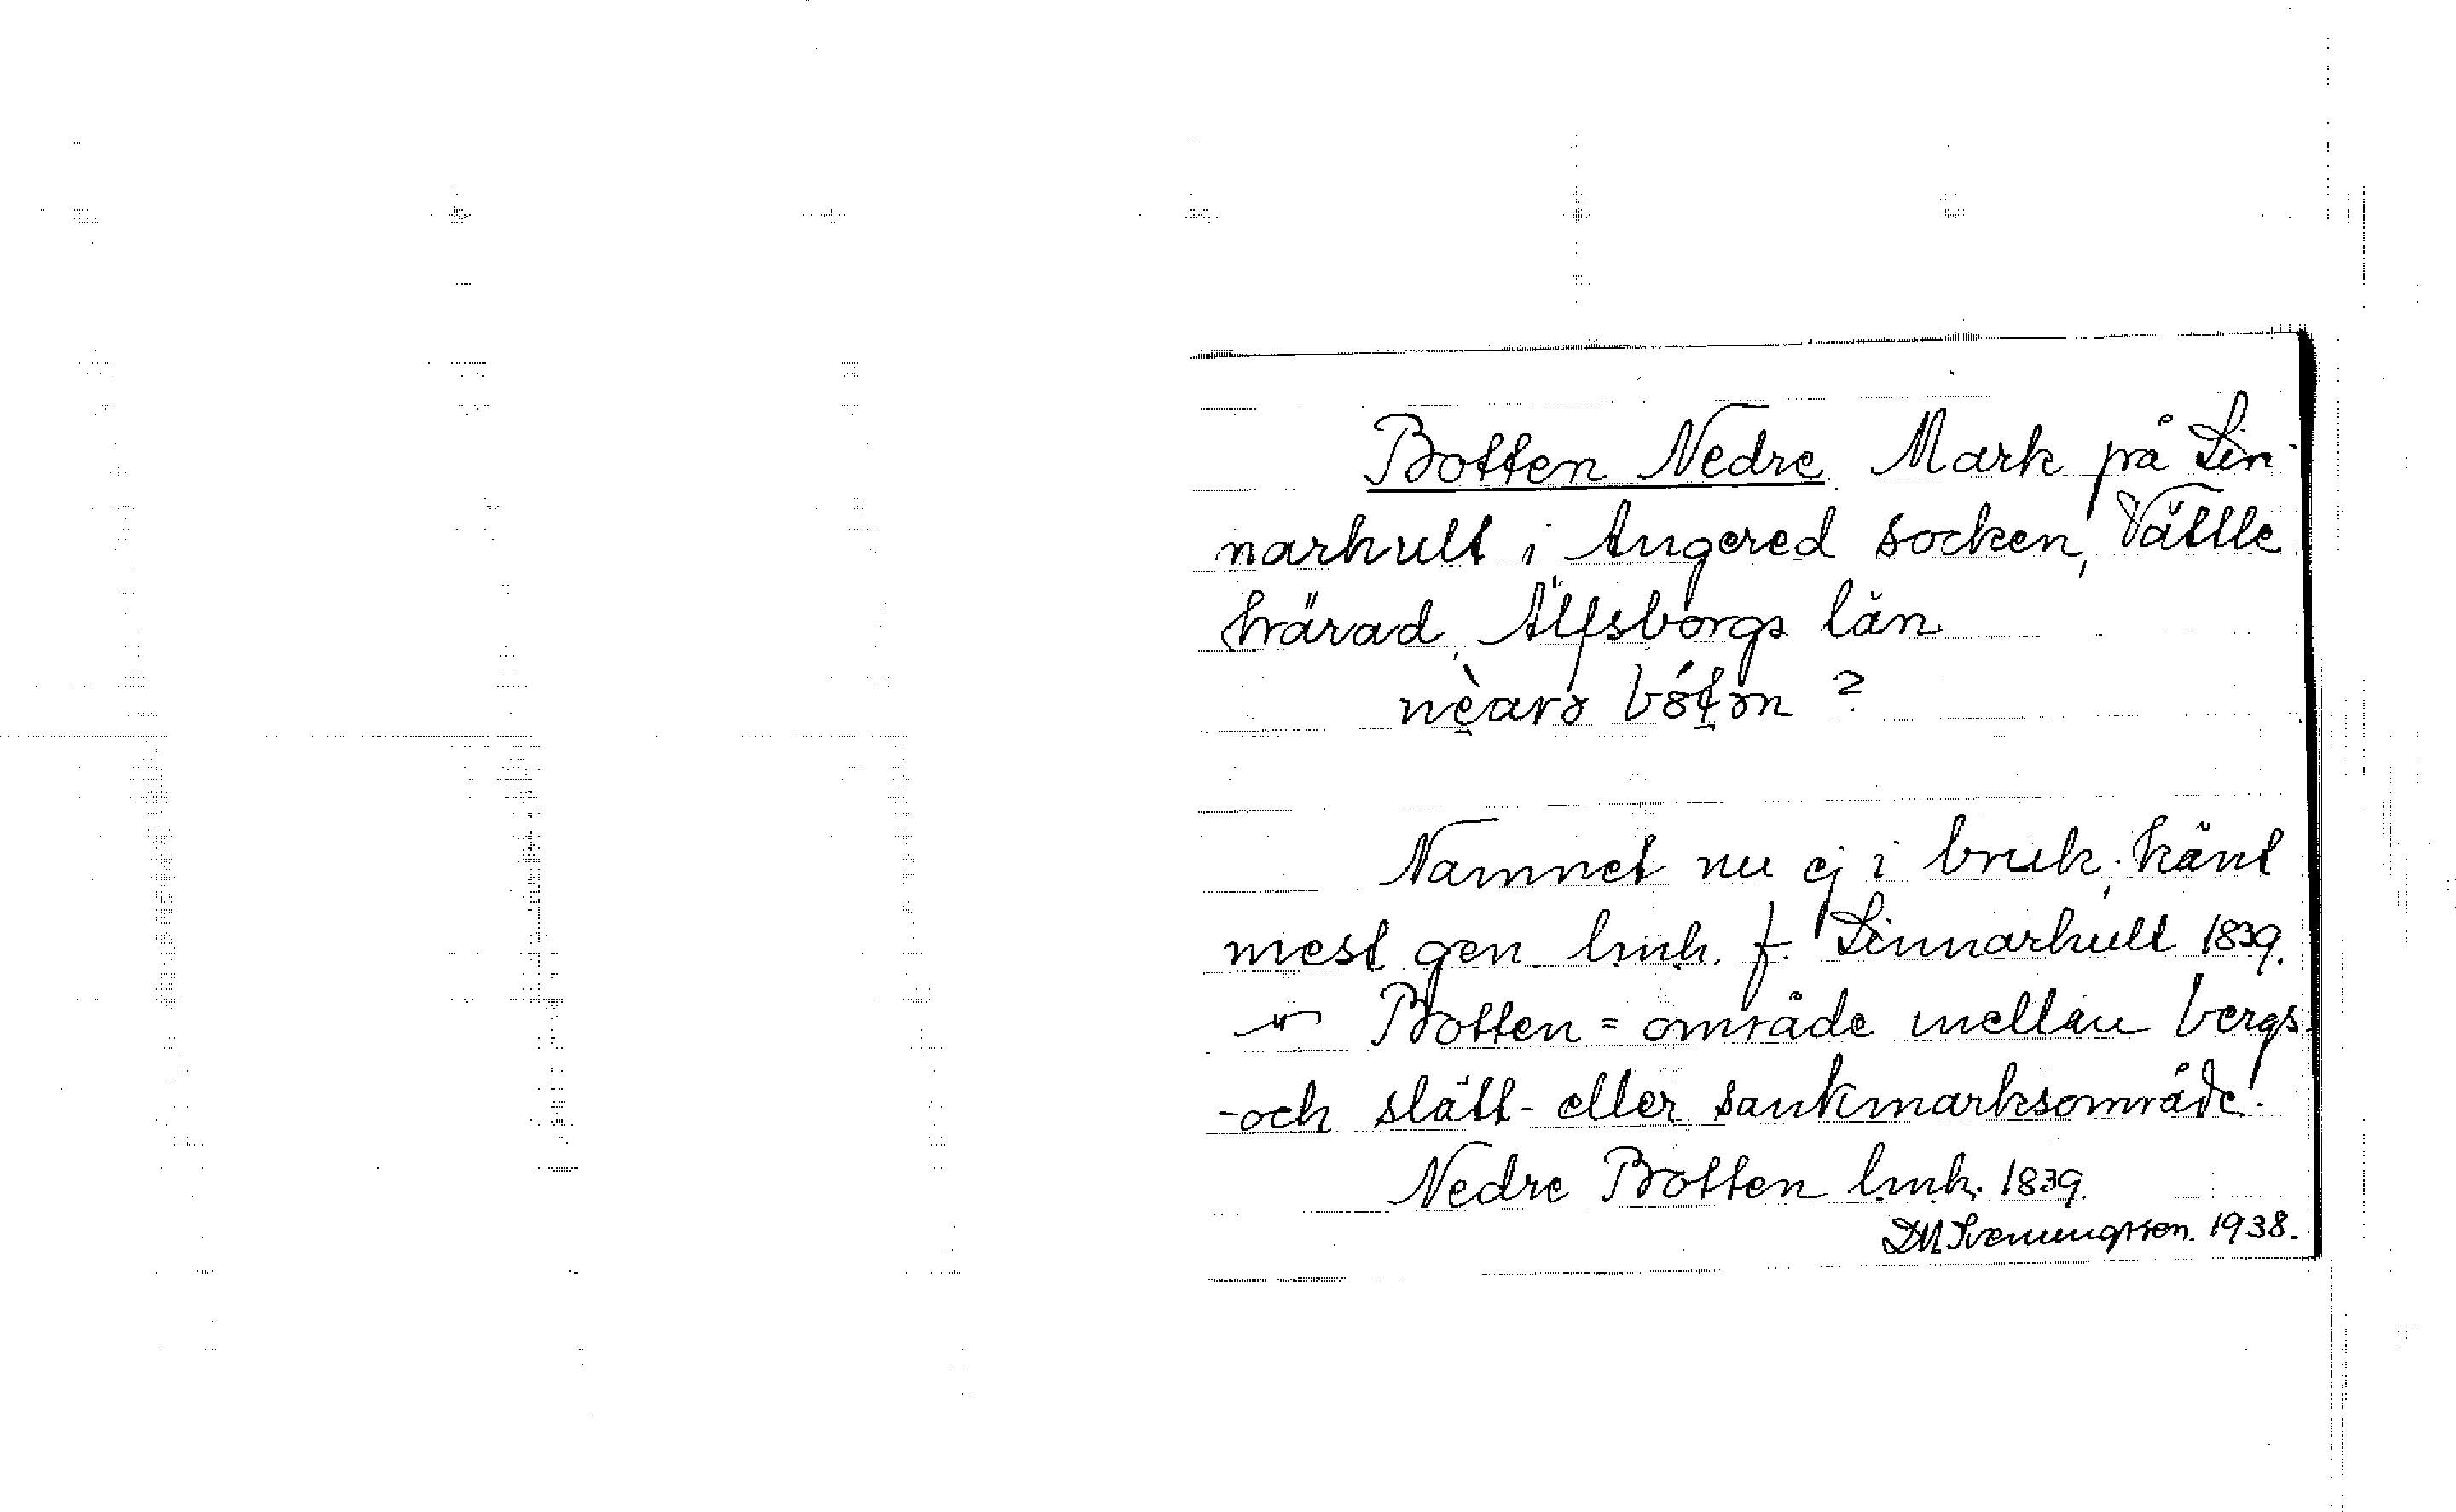 Botten Nedre. Mark på Lin-
narhult i Angered socken, Vättle
härad, Älfsborgs län.
nèarə bót́ən ?
Namnet nu ej i bruk; känt
mest gen. lmh. f. Linnarhult 1839.
Botten = område mellan bergs-
-och slätt- eller sankmarksområde.
Nedre Botten lmh. 1839.
DM. Svenungsson. 1938.